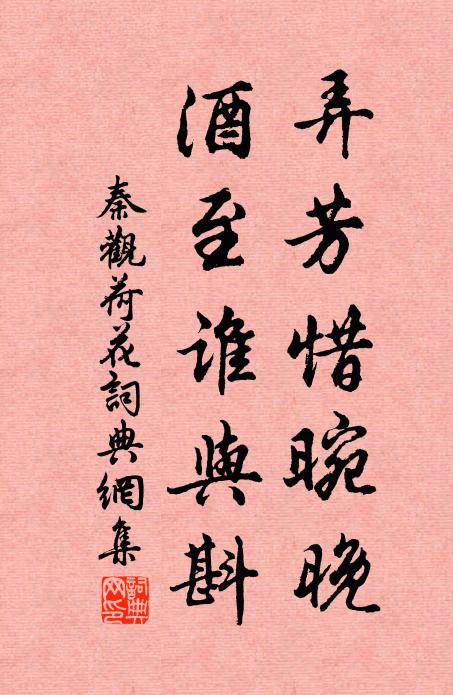 弄芳惜晼晚
酒至谁與斟
秦觀荷花詞典網集
詞典
网印